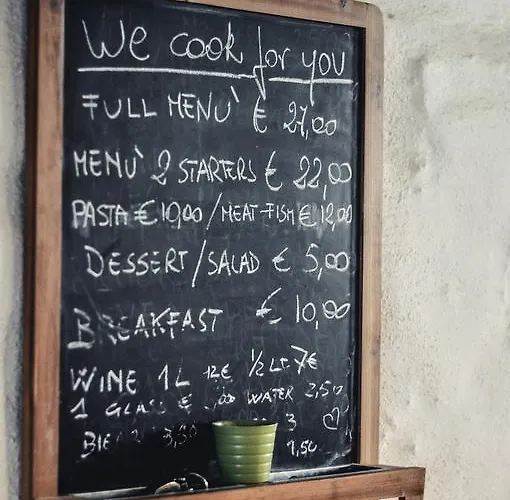 We cook for you
FULL MENU` € 27,00
MENU` 2 STARTERS € 22,00
PASTA € 10,00 / MEAT-FISH € 12,00
DESSERT / SALAD € 5,00
BREAKFAST € 10,00
WINE 1L 12€ ½ LT 7€
1 GLASS € WATER 2,50
3,50 3
1,50